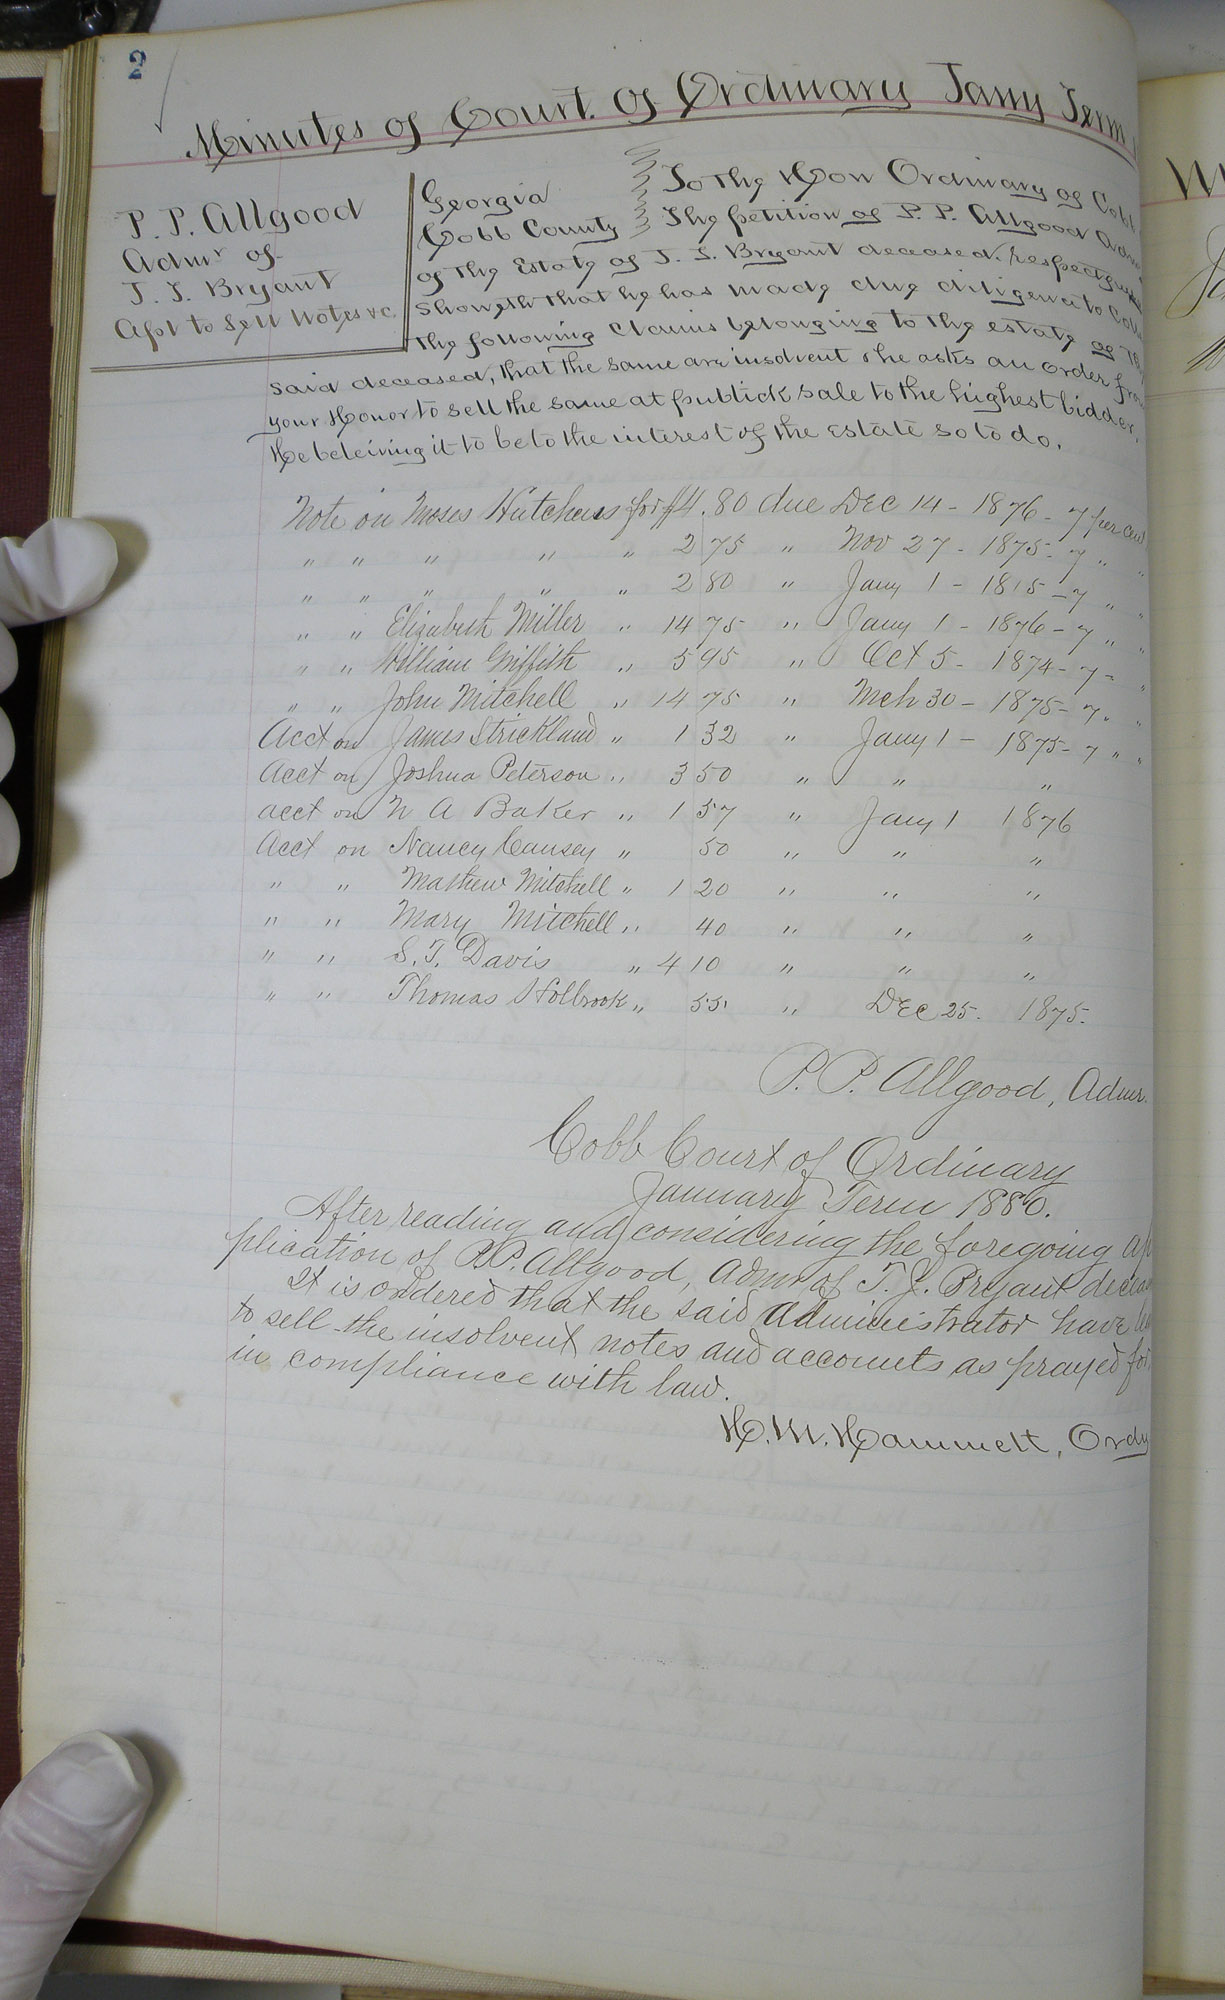 2
Minutes of Court. Of Ordinary Jany Term
P. P. Allgood
Admr of
T. J. Bryant
Apl to Sell Notes &c.
Georgia
Cobb County
To the Hon Ordinary of Cobb
The petition of P. P. Allgood Adm
of the Estate of T. J. Bryant deceased. respectfully
Showeth that he has made due diligence to Coll
the following Claims belonging to the estate of the
said deceased, that the same are insolvent & he asks an order from
your Honor to sell the same at publick sale to the highest bidder.
He beleiving it to be to the interest of the Estate so to do.
Note on Moses Hutchens for $4.80 due Dec 14 - 1876 - 7 per cent
" " " " " 2 75 " Nov 27 - 1875 - 7 " "
" " " " " 2 80 " Jany 1 - 1815 - 7 " "
" " Elizabeth Miller " 14 75 " Jany 1 - 1876 - 7 " "
" " William Griffith " 5 95 " Oct 5 - 1874 - 7 - "
" " John Mitchell " 14 75 " Mch 30 - 1875 - 7 " "
Acct on James Strickland " 1 32 " Jany 1 - 1875 - 7 " "
Acct on Joshua Peterson " 3 50 " " "
acct on N A Baker " 1 57 " Jany 1 1876
Acct on Nancy Causey " 50 " " "
" " Mathew Mitchell " 1 20 " " "
" " Mary Mitchell " 40 " " "
" " S. T. Davis " 4 10 " " "
" " Thomas Holbrook " 55 " Dec 25. 1875.
P. P. Allgood, Admr.
Cobb Court of Ordinary
January Term 1880.
After reading and considering the foregoing ap
plication of P. P. Allgood, Admr of T. J. Bryant deceas
It is ordered that the said Administrator have
to sell the insolvent notes and accounts as prayed for
in compliance with law.
H. M. Hammett, Ordy